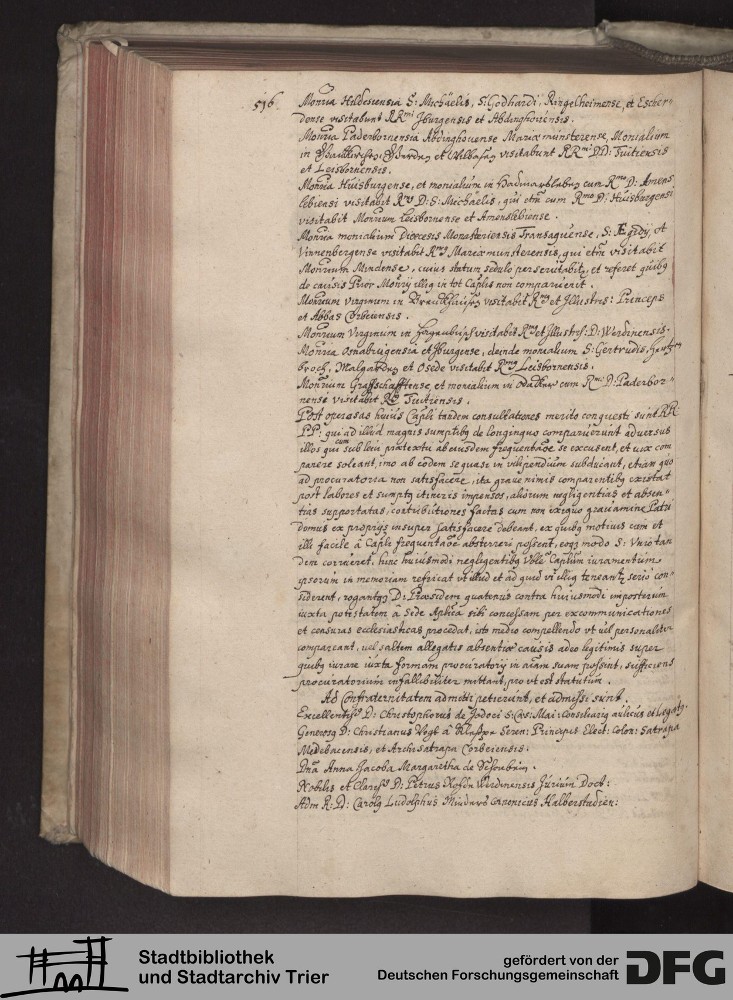 516.
Monria Hildesiensia S: Michäelis, S: Godhardi, Ringelheimense, et Escher-
dense visitabunt RRmi Jburgensis et Abdinghouensis.
Monria Paderbornensia Abdinghouense Mariæ münsterense, Monialium
in et Wilbasen visitabunt RRmi DD: Tuitiensis
et Leisbornensis.
Monria Huisburgense, et monialium in Hadmarsleben cum Rmo D: Amens
lebiensi visitabit Rs D: S: Michäelis, qui etm cum Rmo D: Huisburgensi
visitabit Monrium Leisbornense et Amenslebiense.
Monria monialium Diœcesis Monasteriensis Transaquense, S: Ægidij, et
Vinnenbergense visitabit Rmus Mariæmunsterensis, qui etm visitabit
Monrium Mindense, cuius statum sedulo perscrutabitur, et referet quibus
de causis Prior Monrij illius in tot Caplis non comparuerit.
Monrium virginum in visitabit Rmus et Jllustris: Princeps
et Abbas Corbeiensis.
Monrium Virginum in visitabit Rmus et Jllustris: D: Werdinensis.
Monria Osnabrugensia et Jburgense, deinde monialium S: Gertrudis,
broch, Malgarden et Osede visitabit Rmus Leisbornensis.
Monrium Graffschafftense, et monialium in Odacker cum Rmo D: Paderbor-
nense visitabit Rs Tuitiensis.
Post operosas huius Capli tandem consultationes merito conquesti sunt RR
PP: qui ad illud magnis sumptibus de longinquo comparuerunt adversus
illos qui cum sub leui prætextu ab eiusdem frequentaõe se excusent, et uix com
parere soleant, imo ab eodem se quasi in vilipendium subducant, etiam quo
ad procuratoria non satisfacere, ita graue nimis comparentibus existat
post labores et sumptus itineris impensos, aliorum negligentias et absen-
tias supportatas, contributiones factas cum non exiguo grauamine Patri
domus ex proprijs insuper satisfacere debeant, ex quibus motiuis cum et
illi facile à Capli frequentaõe absterreri possent, eoque modo S: Vnio tan
dem corrueret, hinc huiusmodi negligentibus Vble Caplum iuramentum
ipsorum in memoriam refricat vt illud et ad quid vi illius teneantur serio con-
siderent, rogantque D: Præsidem quatenus contra huiusmodi imposterum
iuxta potestatem à Sede Aplica sibi concessam per excommunicationes
et censuras ecclesiasticas procedat, isto medio compellendo vt uel personaliter
compareant, uel saltem allegatis absentiæ causis adeo legitimis super
quibus iurare iuxta formam procuratorij in aïam suam possint, sufficiens
procuratorium infallibiliter mittant, prout est statutum.
Ad Confraternitatem admitti petierunt, et admissi sunt.
Excellentissus D: Christophorus de Jodoci S: Cæs: Mai: Consiliarius aulicus et Legatus.
Generosus D: Christianus Vogt à Seren: Principis Elect: Colon: Satrapa
Medebacensis, et Archisatrapa Corbeiensis.
Dna Anna Jacoba Margaretha de
Nobilis et Clarissus D: Petrus Werdinensis Jurium Doct:
Adm R: D: Carolus Ludolphus Canonicus Halberstadien:
Stadtbibliothek
und Stadtarchiv Trier
gefördert von der
Deutschen Forschungsgemeinschaft
DFG